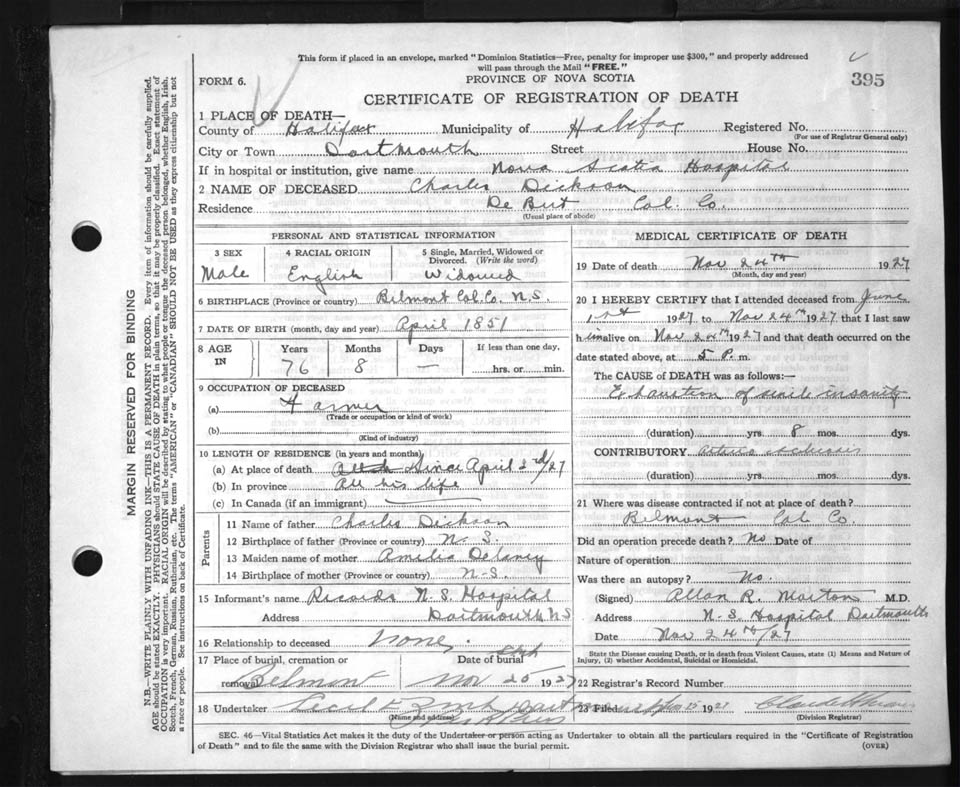 This form if placed in an envelope, marked "Dominion Statistics—Free, penalty for improper use $300," and properly addressed
will pass through the Mail "FREE."
FORM 6.
PROVINCE OF NOVA SCOTIA
395
CERTIFICATE OF REGISTRATION OF DEATH
1 PLACE OF DEATH—
County of Halifax Municipality of Halifax Registered No.
(For use of Registrar General only)
City or Town Dartmouth Street House No.
If in hospital or institution, give name Nova Scotia Hospital
2 NAME OF DECEASED Charles Dickson
Residence De Bert Col. Co.
(Usual place of abode)
PERSONAL AND STATISTICAL INFORMATION
3 SEX 4 RACIAL ORIGIN 5 Single, Married, Widowed or
Divorced. (Write the word)
Male English Widowed
6 BIRTHPLACE (Province or country) Belmont Col. Co. N.S.
7 DATE OF BIRTH (month, day and year) April 1851
8 AGE IN Years Months Days If less than one day,
76 8 — hrs. or min.
9 OCCUPATION OF DECEASED
(a) Farmer
(Trade or occupation or kind of work)
(b)
(Kind of industry)
10 LENGTH OF RESIDENCE (in years and months)
(a) At place of death Since April 2nd/27
(b) In province All his life
(c) In Canada (if an immigrant)
Parents
11 Name of father Charles Dickson
12 Birthplace of father (Province or country) N. S.
13 Maiden name of mother Amelia Delaney
14 Birthplace of mother (Province or country) N-S.
15 Informant's name Records N. S. Hospital
Address Dartmouth N S
16 Relationship to deceased None.
17 Place of burial, cremation or Date of burial
removal Belmont Nov 26 1927
18 Undertaker
(Name and address)
MEDICAL CERTIFICATE OF DEATH
19 Date of death Nov 24th 1927
(Month, day and year)
20 I HEREBY CERTIFY that I attended deceased from June
1st 1927 to Nov 24th 1927 that I last saw
him alive on Nov 24th 1927 and that death occurred on the
date stated above, at 5 P. m.
The CAUSE of DEATH was as follows:—
Exhaustion of senile insanity
(duration) yrs. 8 mos. dys.
CONTRIBUTORY
(duration) yrs. mos. dys.
21 Where was disease contracted if not at place of death?
Belmont Col. Co.
Did an operation precede death? No Date of
Nature of operation
Was there an autopsy? No.
(Signed) Allan R. Morton M.D.
Address N. S. Hospital Dartmouth
Date Nov 24th/27
State the Disease causing Death, or in death from Violent Causes, state (1) Means and Nature of
Injury, (2) whether Accidental, Suicidal or Homicidal.
22 Registrar's Record Number
23 Filed 192
(Division Registrar)
SEC. 46—Vital Statistics Act makes it the duty of the Undertaker or person acting as Undertaker to obtain all the particulars required in the "Certificate of Registration
of Death" and to file the same with the Division Registrar who shall issue the burial permit. (OVER)
MARGIN RESERVED FOR BINDING
N.B.—WRITE PLAINLY WITH UNFADING INK—THIS IS A PERMANENT RECORD. Every item of information should be carefully supplied.
AGE should be stated EXACTLY. PHYSICIANS should STATE CAUSE OF DEATH in plain terms, so that it may be properly classified. Exact statement of
OCCUPATION is very important. RACIAL ORIGIN will be described by stating to what people or tongue the deceased person belonged, whether English, Irish,
Scotch, French, German, Russian, Ruthenian, etc. The terms "AMERICAN" or "CANADIAN" SHOULD NOT BE USED as they express citizenship but not
a race or people. See instructions on back of Certificate.